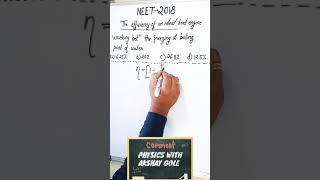 NEET-2018
The efficiency of an ideal heat engine
working betn the freezing & boiling
point of water
a) 6.25% b) 20% c) 26.8% d) 12.5%
η = [1 -
COMMENT
PHYSICS WITH
AKSHAY GOLE